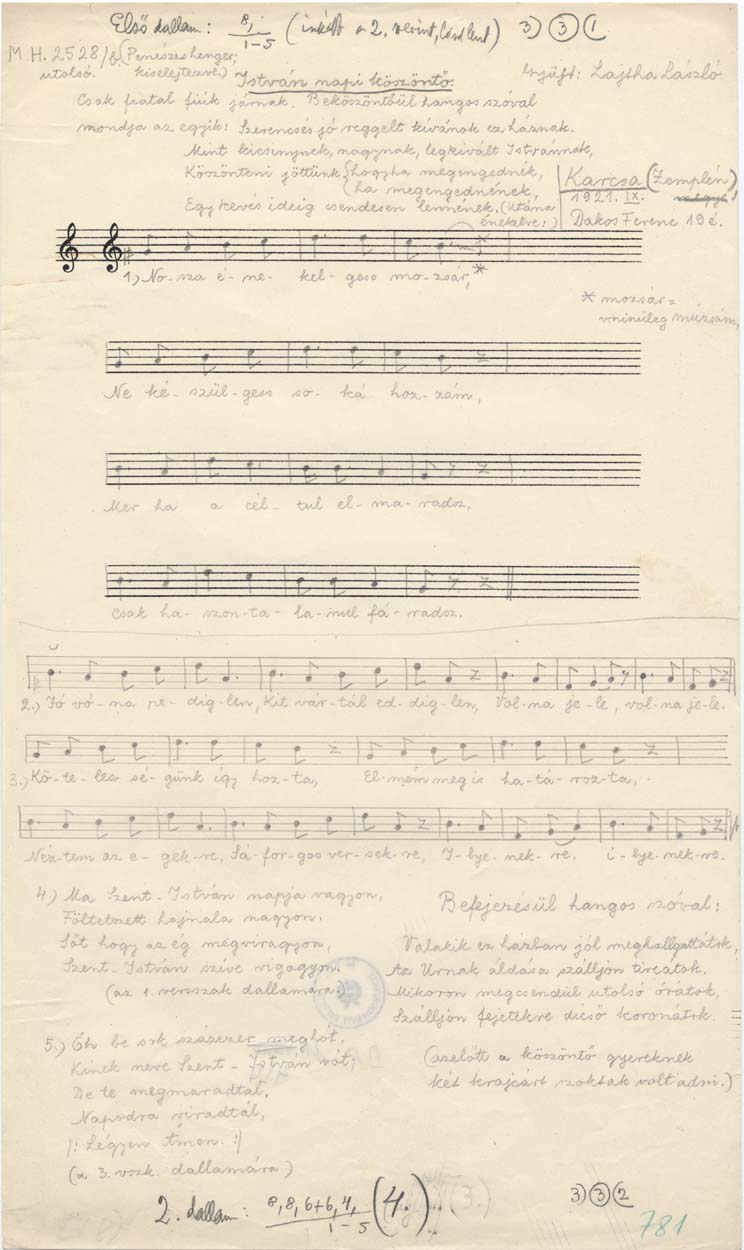 Első dallam: 8, 1-5 (inkább a 2. szerint, lásd lent) 3) (3) (1
M.H. 2528/b. (Penészes henger;
utolsó. kiselejtezve.) István napi köszöntő. Gyüjt: Lajtha László.
Csak fiatal fiúk járnak. Beköszöntőül hangos szóval
mondja az egyik: Szerencsés jó reggelt kívánok ez háznak.
Mint kicsinynek, nagynak, legkivált Istvánnak,
Köszönteni jöttünk {hogyha megengednék,
ha megengednének,
Egy kevés ideig csendesen lennének. (Utána
énekelve:)
Karcsa (Zemplén)
1921. IX.
Dakos Ferenc 19 é.
1.) No-sza é-ne-kel-gess mo-zsár,*
* mozsár=
v.minüleg múzsám,
Ne ké-szül-gess so-ká hoz-zám,
Mer ha a cél-tul el-ma-radsz,
Csak ha-szon-ta-la-nul fá-radsz.
2.) Jó vó-na pe-dig-len, Kit vár-tál ed-dig-len, Vol-na je-le, vol-na je-le.
3.) Kö-te-les sé-günk így hoz-ta, El-mém meg is ha-tá-roz-ta,
Néz-tem az e-gek-re, Sá-for-gos ver-sek-re, I-lye-nek-re, i-lye-nek-re.
4.) Ma Szent-István napja vagyon,
Föltetszett hajnala nagyon.
Sőt hogy az ég megvirágyon,
Szent-István szíve vigagyon.
(az 1. versszak dallamára.)
5.) Óh be sok százezer meghót,
Kinek neve Szent-István vót,
De te megmaradtál,
Napodra viradtál,
|: Légyen Ámen. :|
(a 3. vszk. dallamára)
Befejezésül hangos szóval:
Valakik ez házban jól meghallgattátok,
Az Urnak áldása szálljon tireátok.
Mikoron megcsendül utolsó órátok,
Szálljon fejetekre dicső koronátok.
(azelőtt a köszöntő gyereknek
két krajcárt szoktak volt adni.)
2. dallam: 8, 8, 6+6, 4, 1-5 (4.) 3) (3) (2
781